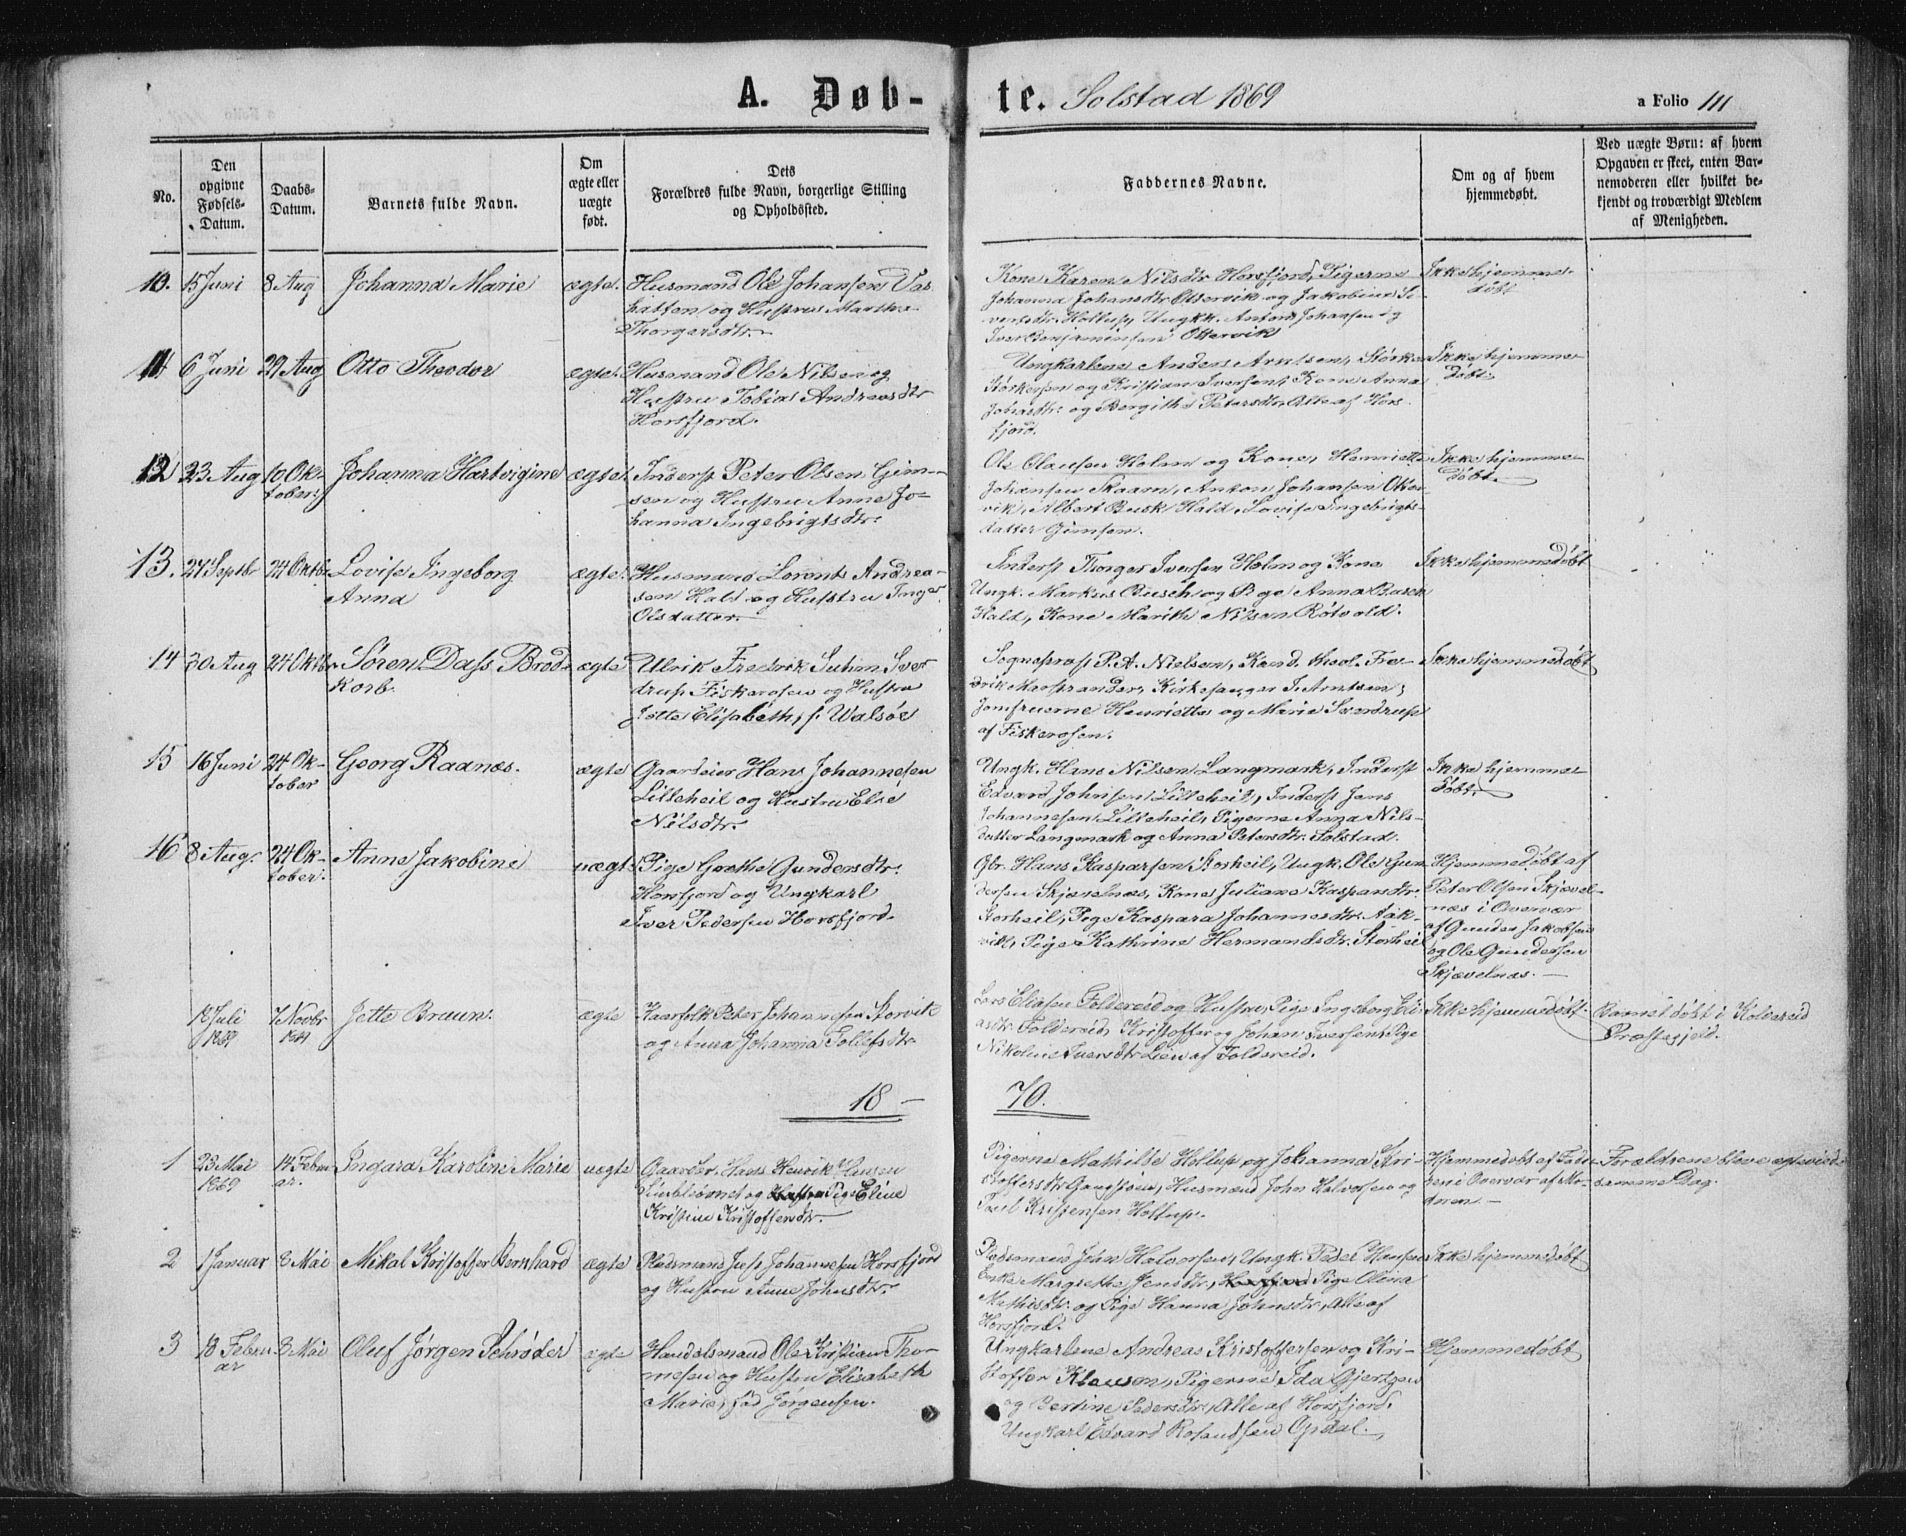 A. Døb-
te. Solstad 1869
a Folio 111
No.
Den
opgivne
Fødsels-
Datum.
Daabs-
Datum.
Barnets fulde Navn.
Om
ægte eller
uægte
født.
Dets
Forældres fulde Navn, borgerlige Stilling
og Opholdssted.
Faddernes Navne.
Om og af hvem
hjemmedøbt.
Ved uægte Børn: af hvem
Opgaven er skeet, enten Bar-
nemoderen eller hvilket be-
kjendt og troværdigt Medlem
af Menigheden.
10. 15 Juni 8 Aug Johanna Marie ægte. Husmand Ole Johansen Vas
hatten og Hustru Martha
Thorgersdtr.
Kone Karen Nilsdtr Horsfjord, Pigerne
Johanna Johansdtr Ottervik og Jakobine Si-
vertsdtr. Hollup, Ungkk. Anton Johansen og
Iver Benjaminsen Ottervik
Ikke hjemme-
døbt
11 6 Juni 29 Aug Otto Theodor ægte. Husmand Ole Nilsen og
Hustru Tobias Andreasdtr
Horsfjord.
Ungkarlene Anders Arntsen, Størker
Størkersen og Kristian Iversen, Kone Anna
Johasdtr. og Bergithe Petersdtr, Alle af Hors
fjord.
Ikke hjemme
døbt.
12 23 Aug 10 Ok-
tober. Johanna Hartvigine ægte. Inderst Peter Olsen Gim-
sen og Hustru Anne Jo-
hanna Ingebrigtsdtr.
Ole Olausen Holm og Kone, Henriette
Johansen Skaarn, Anton Johansen Otter-
vik, Albert Busk Hald, Lovise Ingebrigts-
datter Gimsen.
Ikke hjemme
døbt.
13. 27 Septbr 24 Oktbr. Lovise Ingeborg
Anna ægte. Husmand Lorents Andrea-
sen Hald og Hustru Inger
Olsdatter.
Inderst Thorger Iversen Holm og Kone
Ungk. Markus Busch og Pige Anna Busch
Hald, Kone Marith Nilsen Rötvold.
Ikke hjemmedøbt
14 30 Aug 24 Oktbr. Søren Dass Brod-
korb. ægte Ulrik Fredrik Suhm Sver
drup Fiskerosen og Hustru
Jette Elisabeth, f. Walsöe
Sogneprest P. A. Nielsen, Kand. theol. Fre-
drik Marstrander, Kirkesanger J. Arntsen,
Jomfruerne Henriette og Marie Sverdrup
af Fiskerosen.
Ikke hjemmedøbt
15 16 Juni 24 Ok-
tober Georg Raanæs. ægte Gaardeier Hans Johannesen
Lilleheil og Hustru Else
Nilsdtr.
Ungk. Hans Nilsen Langmark, Inderst
Edvard Johnsen Lilleheil, Inderst Jens
Johannesen Lilleheil, Pigerne Anna Nils-
datter Langmark og Anna Petersdtr. Solstad.
Ikke hjemme
døbt.
16 8 Aug. 24 Ok-
tober. Anne Jakobine uægte Pige Grethe Gundersdtr.
Horsfjord og Ungkarl
Iver Pedersen Horsfjord.
Gbr. Hans Kaspersen Storheil, Ungk. Ole Gun
dersen Skjævelnæs, Kone Juliane Kaspersdtr.
Storheil, Pige Kaspara Johannesdtr. Aak-
vik, Pige Kathrine Hermandsdtr. Storheil
Hjemmedøbt af
Peter Olsen Skjævel-
næs i Overvær
af Gunder Jakobsen
og Ole Gundersen
Skjævelnæs.
18 Juli
1869 7 Novbr
1869 Jette Braun. ægte Kaarfolk Peter Johannesen Storvik
og Anna Johanna Tollefsdtr.
Lars Eliasen Foldereid og Hustru, Pige Ingeborg Eli
asdtr. Foldereid, Kristoffer og Johan Iversen, Pige
Nikoline Iversdtr Lien af Foldereid.
Ikke hjemmedøbt.
Barnet døbt i Kolvereid
Præstegjeld.
18 -
70.
1 23 Mai
1869 14 Febru
ar. Ingara Karoline Marie uægte Gaardbr. Hans Henrik Hansen
og Hustru Pige Eline
Kristine Kristoffersdtr.
Pigerne Mathilde Hollup og Johanna Kri-
stoffersdtr, Husmænd John Halvorsen og
Poul Kristensen Hollup.
Hjemmedøbt af Fade-
ren i Overvær af Mo-
deren
Forældrene bleve egteviede
samme Dag.
2 1 Januar 8 Mai Mikal Kristoffer Bernhard ægte Pladsmand Jens Johannesen Horsfjord
og Hustru Anne Johnsdtr.
Pladsmand John Halvorsen, Ungk. Peder Hansen
Enke Margrethe Jensdtr, Horsfjord Pige Olina
Mathisdtr. og Pige Hanna Johnsdtr, Alle af
Horsfjord.
Ikke hjemmedøbt
3 18 Febru
ar 8 Mai Oluf Jørgen Schrøder ægte Handelsmand Ole Kristian Tho-
mesen og Hustru Elisabeth
Marie, fød Jørgensen.
Ungkarlene Andreas Kristoffersen og Kri-
stoffer Klausen, Pigerne Ida Gjertsen
og Bertine Pedersdtr, Alle af Horsfjord.
Ungkarl Edvard Rosandsen Opdal.
Hjemmedøbt